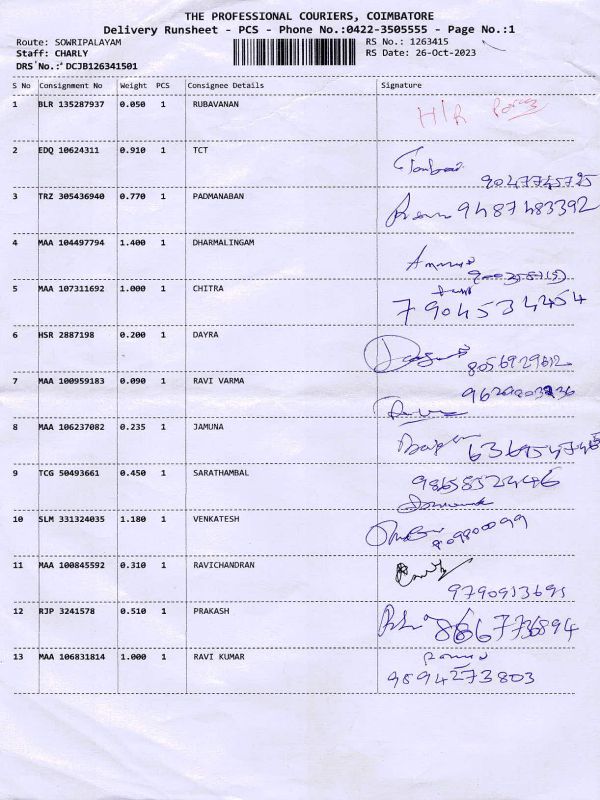 THE PROFESSIONAL COURIERS, COIMBATORE
Delivery Runsheet - PCS - Phone No.:0422-3505555 - Page No.:1
Route: SOWRIPALAYAM RS No.: 1263415
Staff: CHARLY RS Date: 26-Oct-2023
DRS No.: DCJB126341501
S No Consignment No Weight PCS Consignee Details Signature
1 BLR 135287937 0.050 1 RUBAVANAN
H/R
2 EDQ 10624311 0.910 1 TCT
9047745725
3 TRZ 305436940 0.770 1 PADMANABAN
9487483392
4 MAA 104497794 1.400 1 DHARMALINGAM
5 MAA 107311692 1.000 1 CHITRA
7904534454
6 HSR 2887198 0.200 1 DAYRA
8056929612
7 MAA 100959183 0.090 1 RAVI VARMA
8 MAA 106237082 0.235 1 JAMUNA
9 TCG 50493661 0.450 1 SARATHAMBAL
10 SLM 331324035 1.180 1 VENKATESH
11 MAA 100845592 0.310 1 RAVICHANDRAN
9790913691
12 RJP 3241578 0.510 1 PRAKASH
13 MAA 106831814 1.000 1 RAVI KUMAR
9894273803